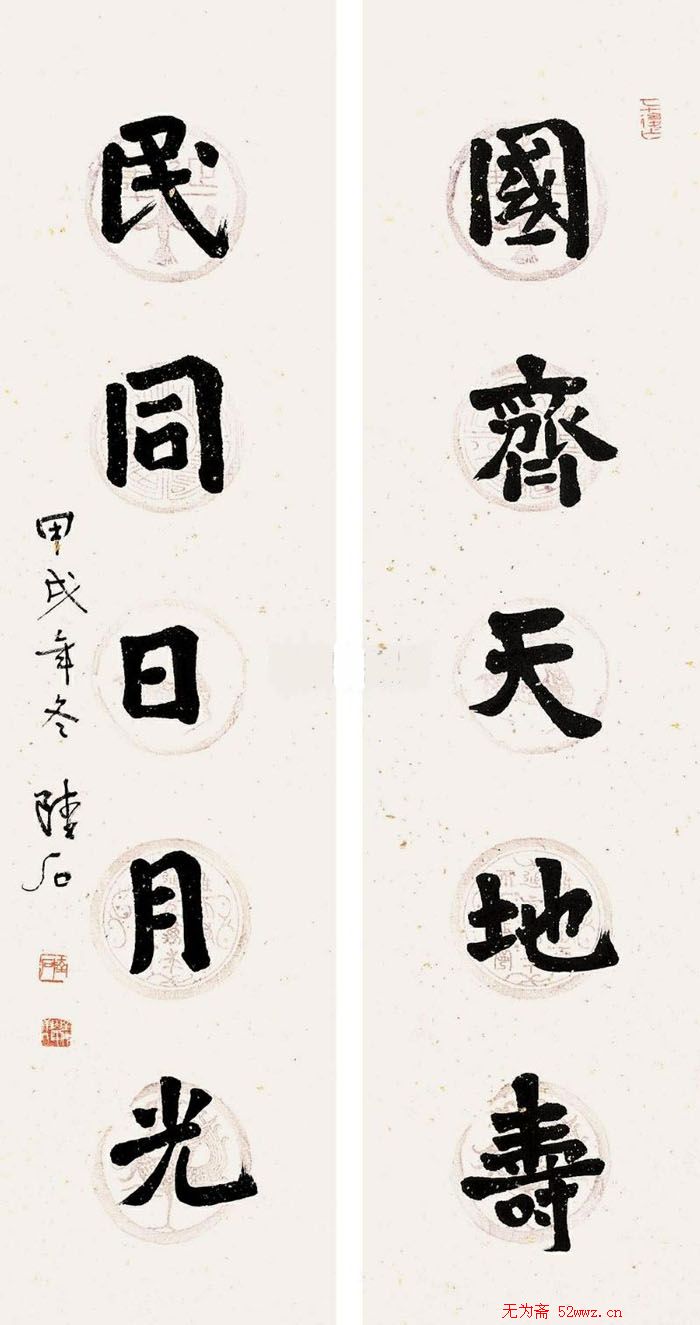 國齊天地壽
民同日月光
甲戌年冬 陸石
无为斋 52wwz.cn